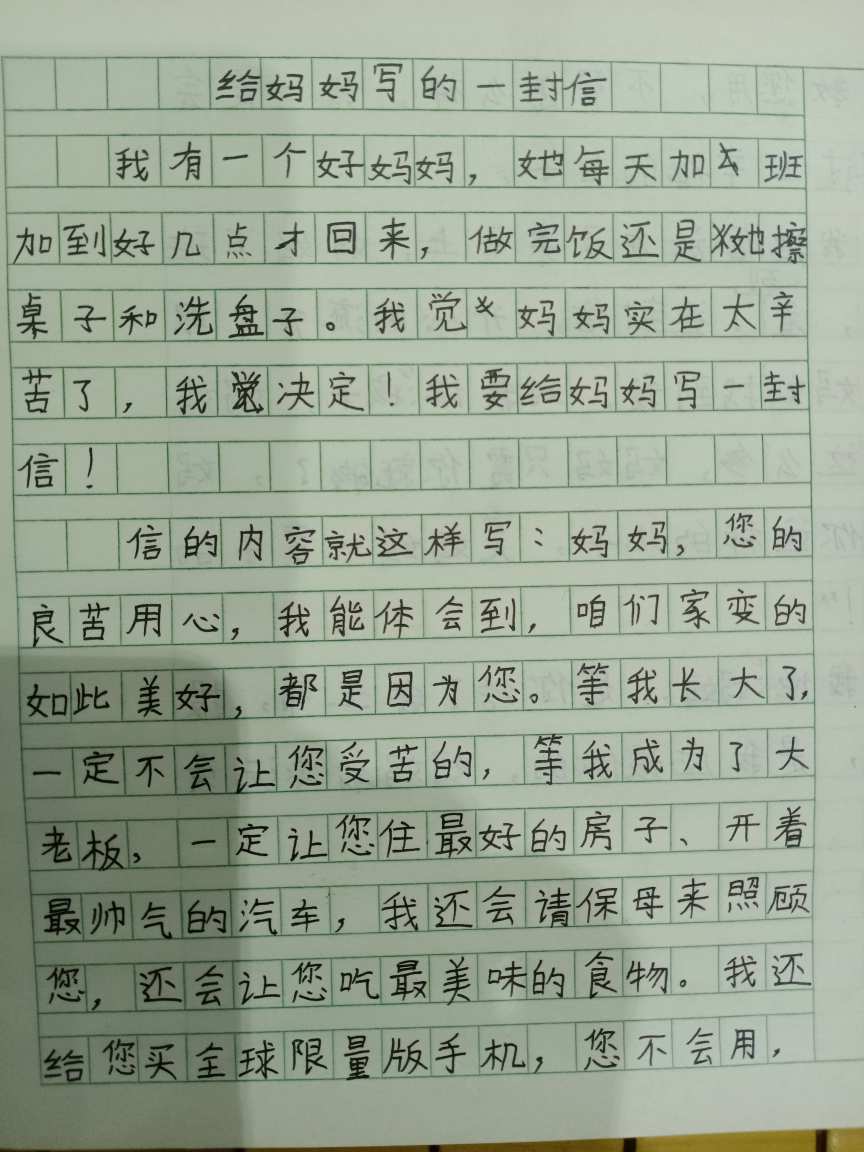 给妈妈写的一封信
我有一个好妈妈，她每天加班
加到好几点才回来，做完饭还是她擦
桌子和洗盘子。我觉妈妈实在太辛
苦了，我决定！我要给妈妈写一封
信！
信的内容就这样写：妈妈，您的
良苦用心，我能体会到，咱们家变的
如此美好，都是因为您。等我长大了，
一定不会让您受苦的，等我成为了大
老板，一定让您住最好的房子、开着
最帅气的汽车，我还会请保母来照顾
您，还会让您吃最美味的食物。我还
给您买全球限量版手机，您不会用，